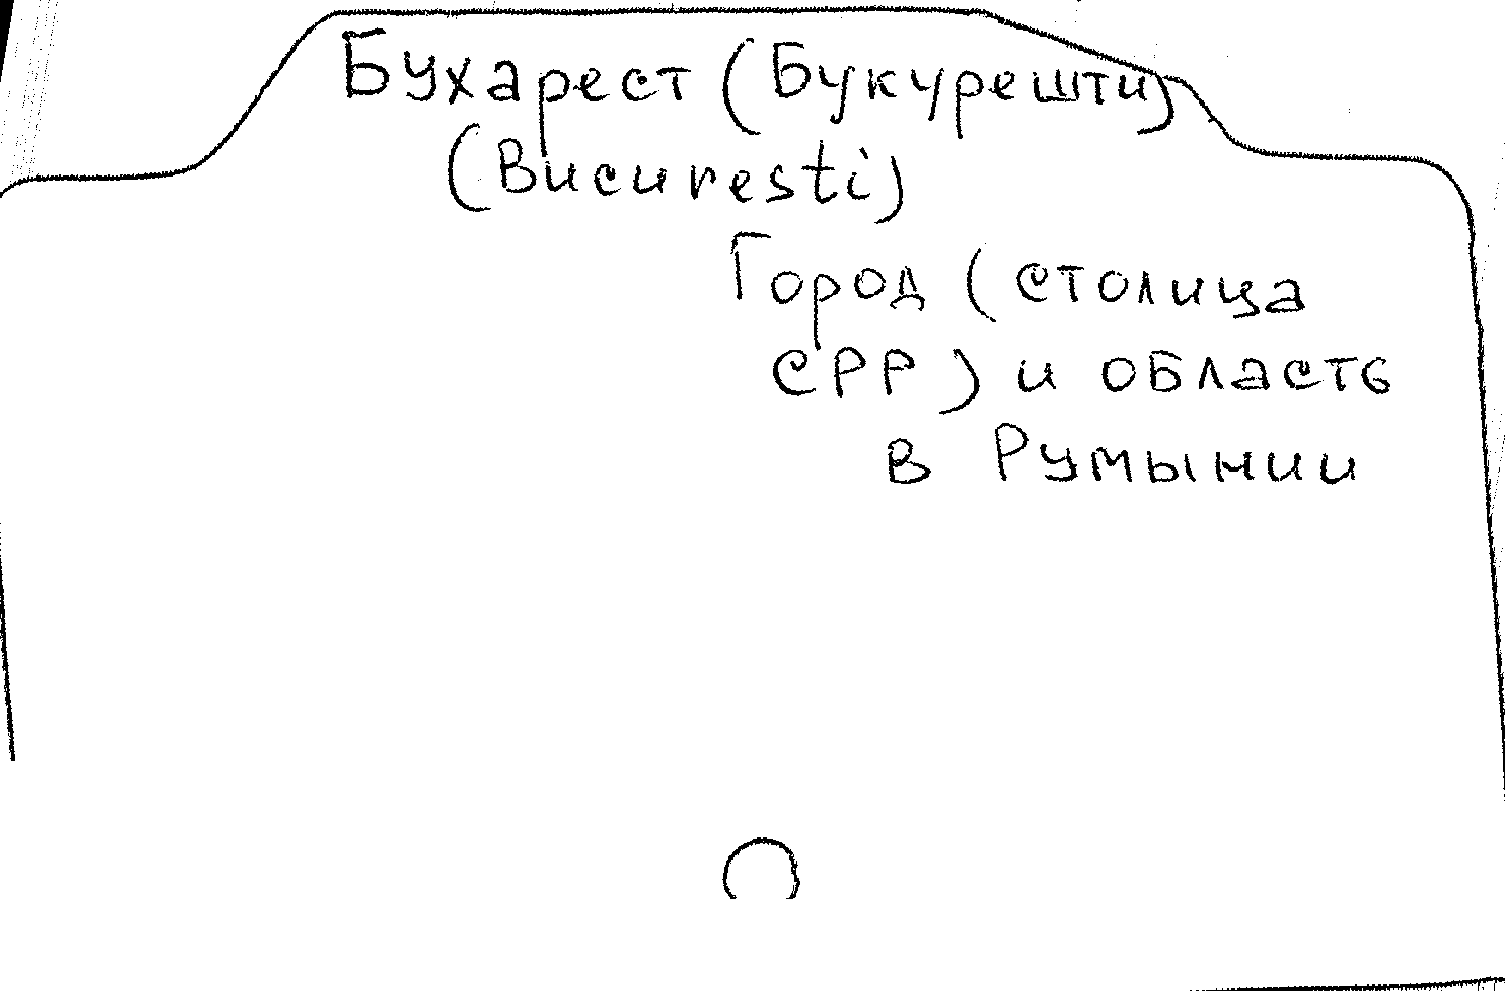 Бухарест (Букурешти)
(Bucuresti)
Город (столица
СРР) и область
в Румынии